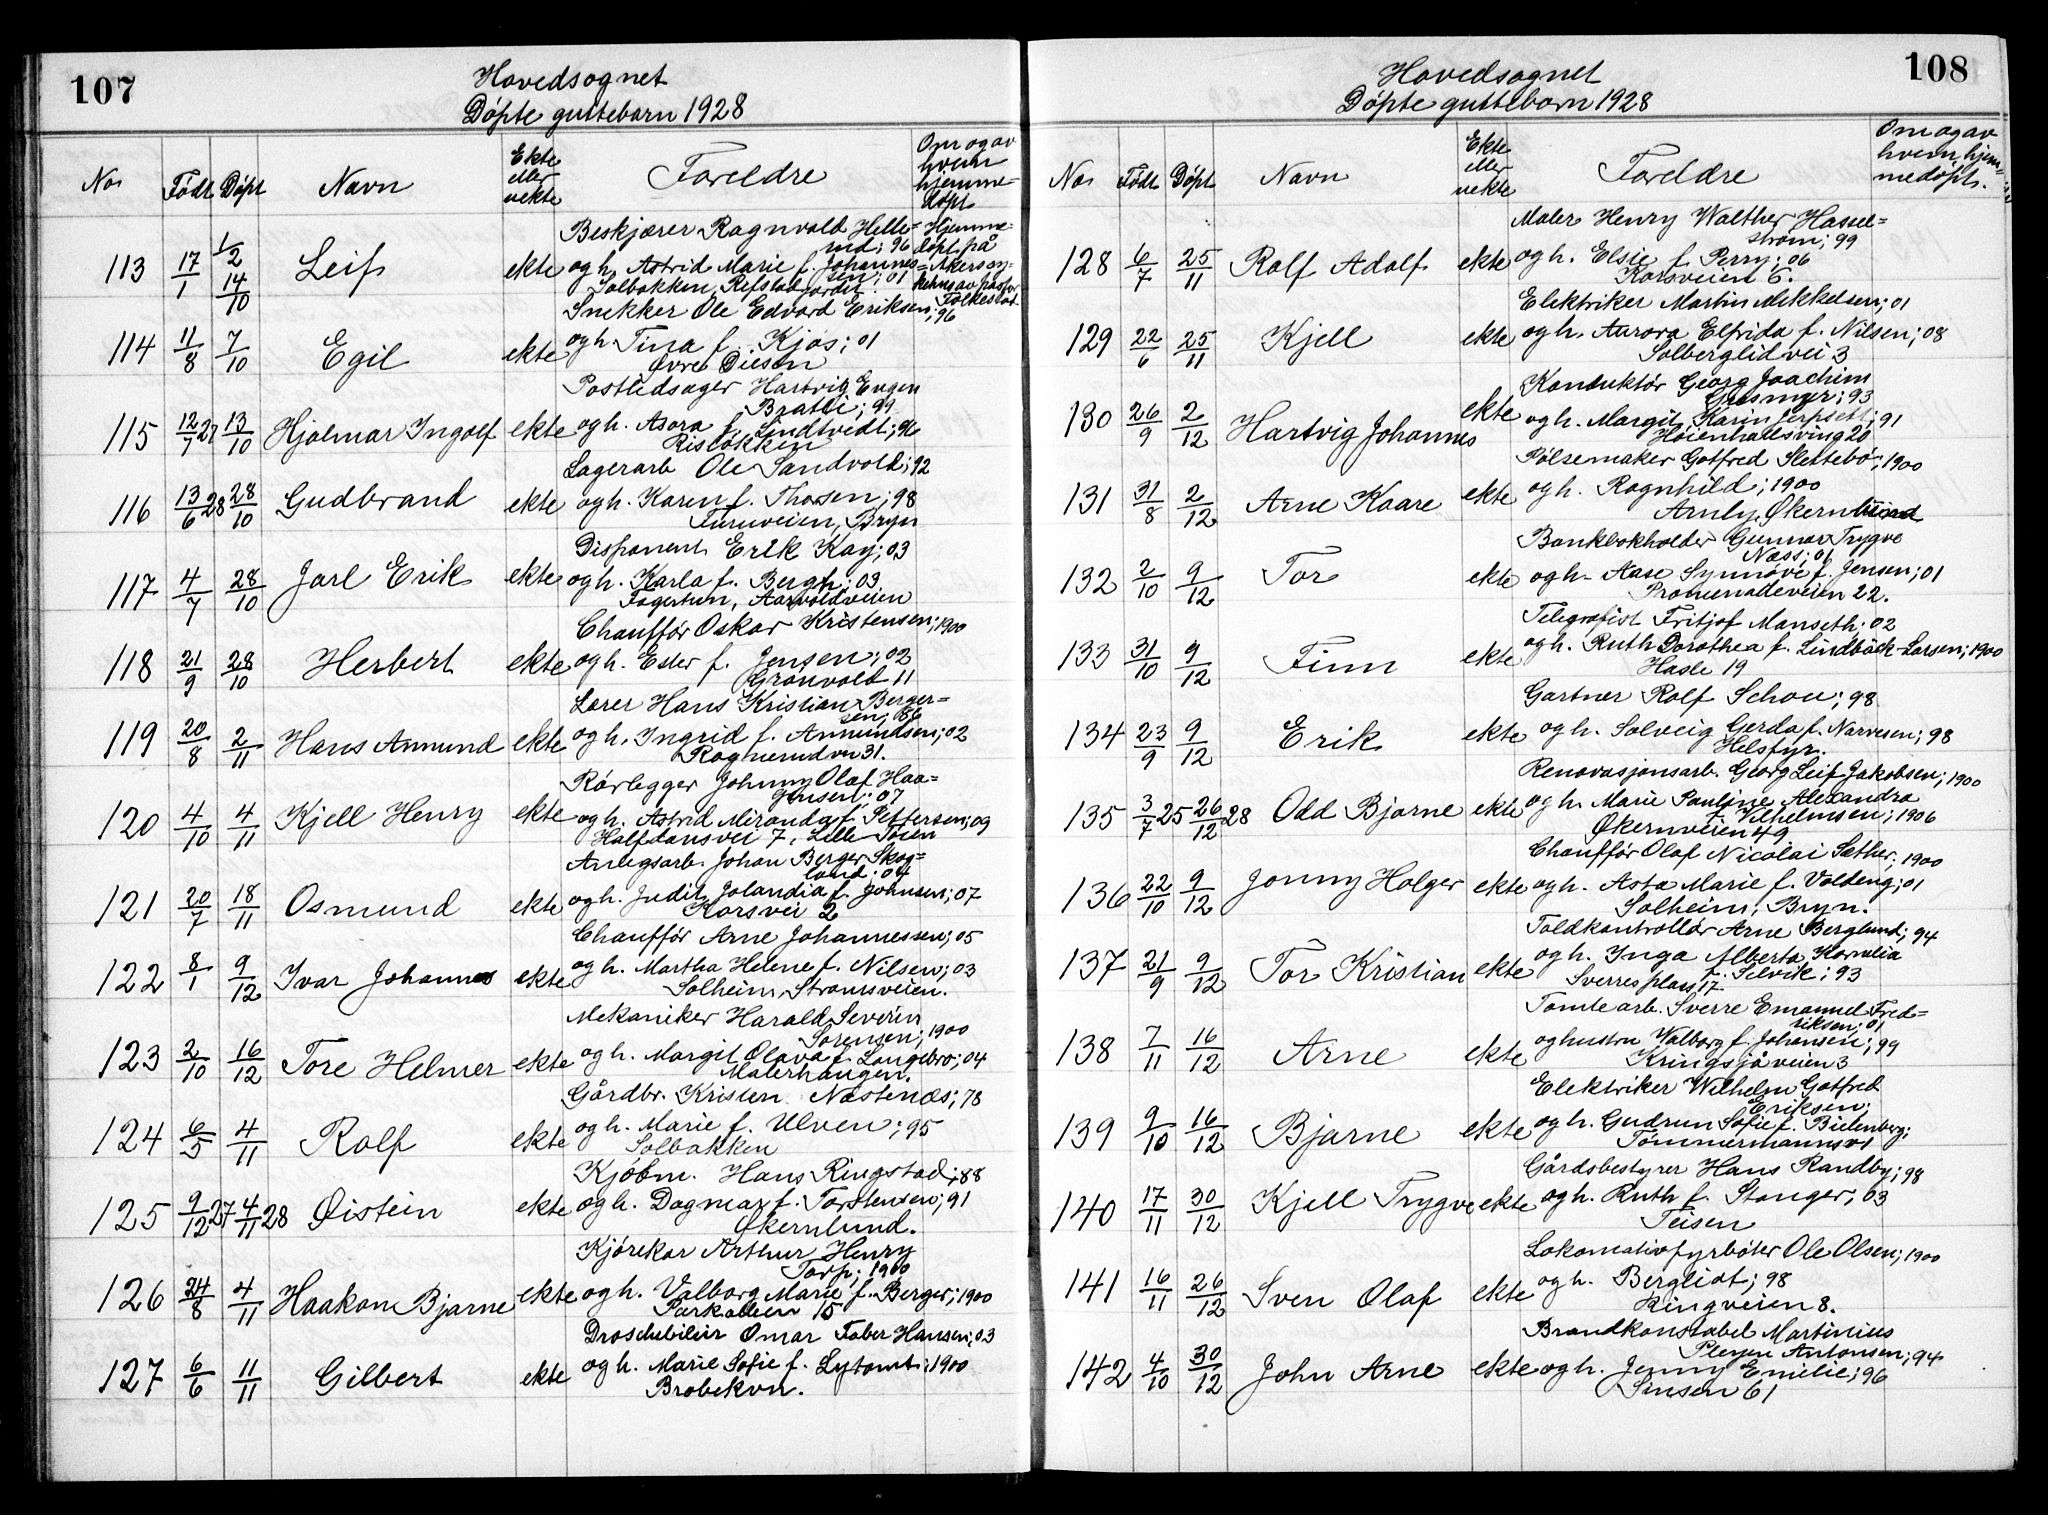 107
Hovedsognet
Döpte guttebarn 1928
No Født Döpt Navn Ekte eller uekte Foreldre Om og av hvem hjemmedöpt
113 17/1 1/2 14/10 Leif ekte Beskjærer Ragnvold Hellemd; 96
og h. Astrid Marie f. Johannessen; 01
Solbakken, Refstad
Hjemmedöpt på Akers av pastor Folkestad.
114 11/8 7/10 Egil ekte Snekker Ole Edvard Eriksen; 96
og h. Tina f. Kjos; 01
Övre Oiesen
115 12/7 27 13/10 Hjalmar Ingolf ekte Postledsager Hartvig Eugen
Bratli; 99
og h. Asora f. Lindtvedt; 96
Risløkken
116 13/6 28 28/10 Gudbrand ekte Lagerarb Ole Sandvold; 92
og h. Karen f. Thorsen; 98
Turnveien, Bryn
117 4/7 28/10 Jarl Erik ekte Disponent Erik Kay; 03
og h. Karla f. Bergh; 03
Fagertun, Aarvoldveien
118 21/9 28/10 Herbert ekte Chaufför Oskar Kristensen; 1900
og h. Ester f. Jensen; 02
Grönvold 11
119 20/8 2/11 Hans Anmund ekte Lærer Hans Kristian Bergersen; 86
og h. Ingrid f. Anmundsen; 02
Rognerud vn 31.
120 4/10 4/11 Kjell Henry ekte Rörlegger Johnny Olaf Haagensen; 07
og h. Astrid Miranda f. Pettersen; 09
Halfdansvei 7, Lille Töien
121 20/7 18/11 Osmund ekte Anlegsarb. Johan Berger Skogland; 04
og h. Judit Jolandia f. Johnsen; 07
Korsvei 2
122 8/1 9/12 Ivar Johannes ekte Chaufför Arne Johannessen; 05
og h. Martha Helene f. Nilsen; 03
Solheim, Strømsveien.
123 2/10 16/12 Tore Helmer ekte Mekaniker Harald Severin
Sørensen; 1900
og h. Margit Olava f. Langebro; 04
Malerhaugen.
124 6/5 4/11 Rolf ekte Gårdbr. Kristen Næstenæs; 78
og h. Marie f. Ulven; 95
Solbakken
125 9/12 27 4/11 28 Øistein ekte Kjöbm. Hans Ringstad; 88
og h. Dagmar f. Torstensen; 91
Økernlund.
126 24/8 4/11 Haakon Bjarne ekte Kjörekar Arthur Henry
Torp; 1900
og h. Valborg Marie f. Berger; 1900
Parkalleen 15
127 6/6 11/11 Gilbert ekte Droschebileier Omar Faber Hansen; 03
og h. Marie Sofie f. Lytomt; 1900
Brobekvn.
108
Hovedsognet
Döpte guttebarn 1928
No Født Döpt Navn Ekte eller uekte Foreldre Om og av hvem hjemmedöpt.
128 6/7 25/11 Rolf Adolf ekte Maler Henry Walther Hasselström; 99
og h. Elsie f. Perry; 06
Korsveien 6.
129 22/6 25/11 Kjell ekte Elektriker Martin Mikkelsen; 01
og h. Aurora Elfrida f. Nilsen; 08
Solberglidvei 3
130 26/9 2/12 Hartvig Johannes ekte Konduktör Georg Joachim
Grösmyr; 93
og h. Margit Karin Jerpsett; 91
Höienhallsving 20
131 31/8 2/12 Arne Kaare ekte Pölsemaker Gotfred Slettebö; 1900
og h. Ragnhild; 1900
Arnly, Økern
132 2/10 9/12 Tor ekte Bankbokholder Gunnar Trygve
Næss; 01
og h. Aase Synnöve f. Jensen; 01
Promenadeveien 22.
133 31/10 9/12 Finn ekte Telegrafist Fritjof Manseth; 02
og h. Ruth Dorothea f. Lindbäck-Larsen; 1900
Hasle 19
134 23/9 9/12 Erik ekte Gartner Rolf Schou; 98
og h. Solveig Gerda f. Narvesen; 98
Helsfyr.
135 3/7 25 26/12 28 Odd Bjarne ekte Renovasjonsarb. Georg Leif Jakobsen; 1900
og h. Marie Pauline Alexandra
f. Vilhelmsen; 1906
Økernveien 49
136 22/10 9/12 Jonny Holger ekte Chaufför Olaf Nicolai Sæther; 1900
og h. Asta Marie f. Voldeng; 01
Solheim, Bryn.
137 21/9 9/12 Tor Kristian ekte Toldkontrollör Arne Berglund; 94
og h. Inga Alberta Kornelia
f. Selvik; 93
Sverresplass 17
138 7/11 16/12 Arne ekte Tomtearb. Sverre Emanuel Fredriksen; 01
og hustru Valborg f. Johansen; 99
Kringsjåveien 3
139 9/10 16/12 Bjarne ekte Elektriker Wilhelm Gotfred
Eriksen;
og h. Gudrun Sofie f. Bielenberg;
Tömmermannsv 1
140 17/11 30/12 Kjell Trygve ekte Gårdsbestyrer Hans Randby; 98
og h. Ruth f. Stanger; 03
Teisen
141 16/11 26/12 Sven Olaf ekte Lokomotivfyrböter Ole Olsen; 1900
og h. Bergliot; 98
Ringveien 8.
142 4/10 30/12 John Arne ekte Brandkonstabel Martinius
Antonsen; 94
og h. Jenny Emilie; 96
Sinsen 61